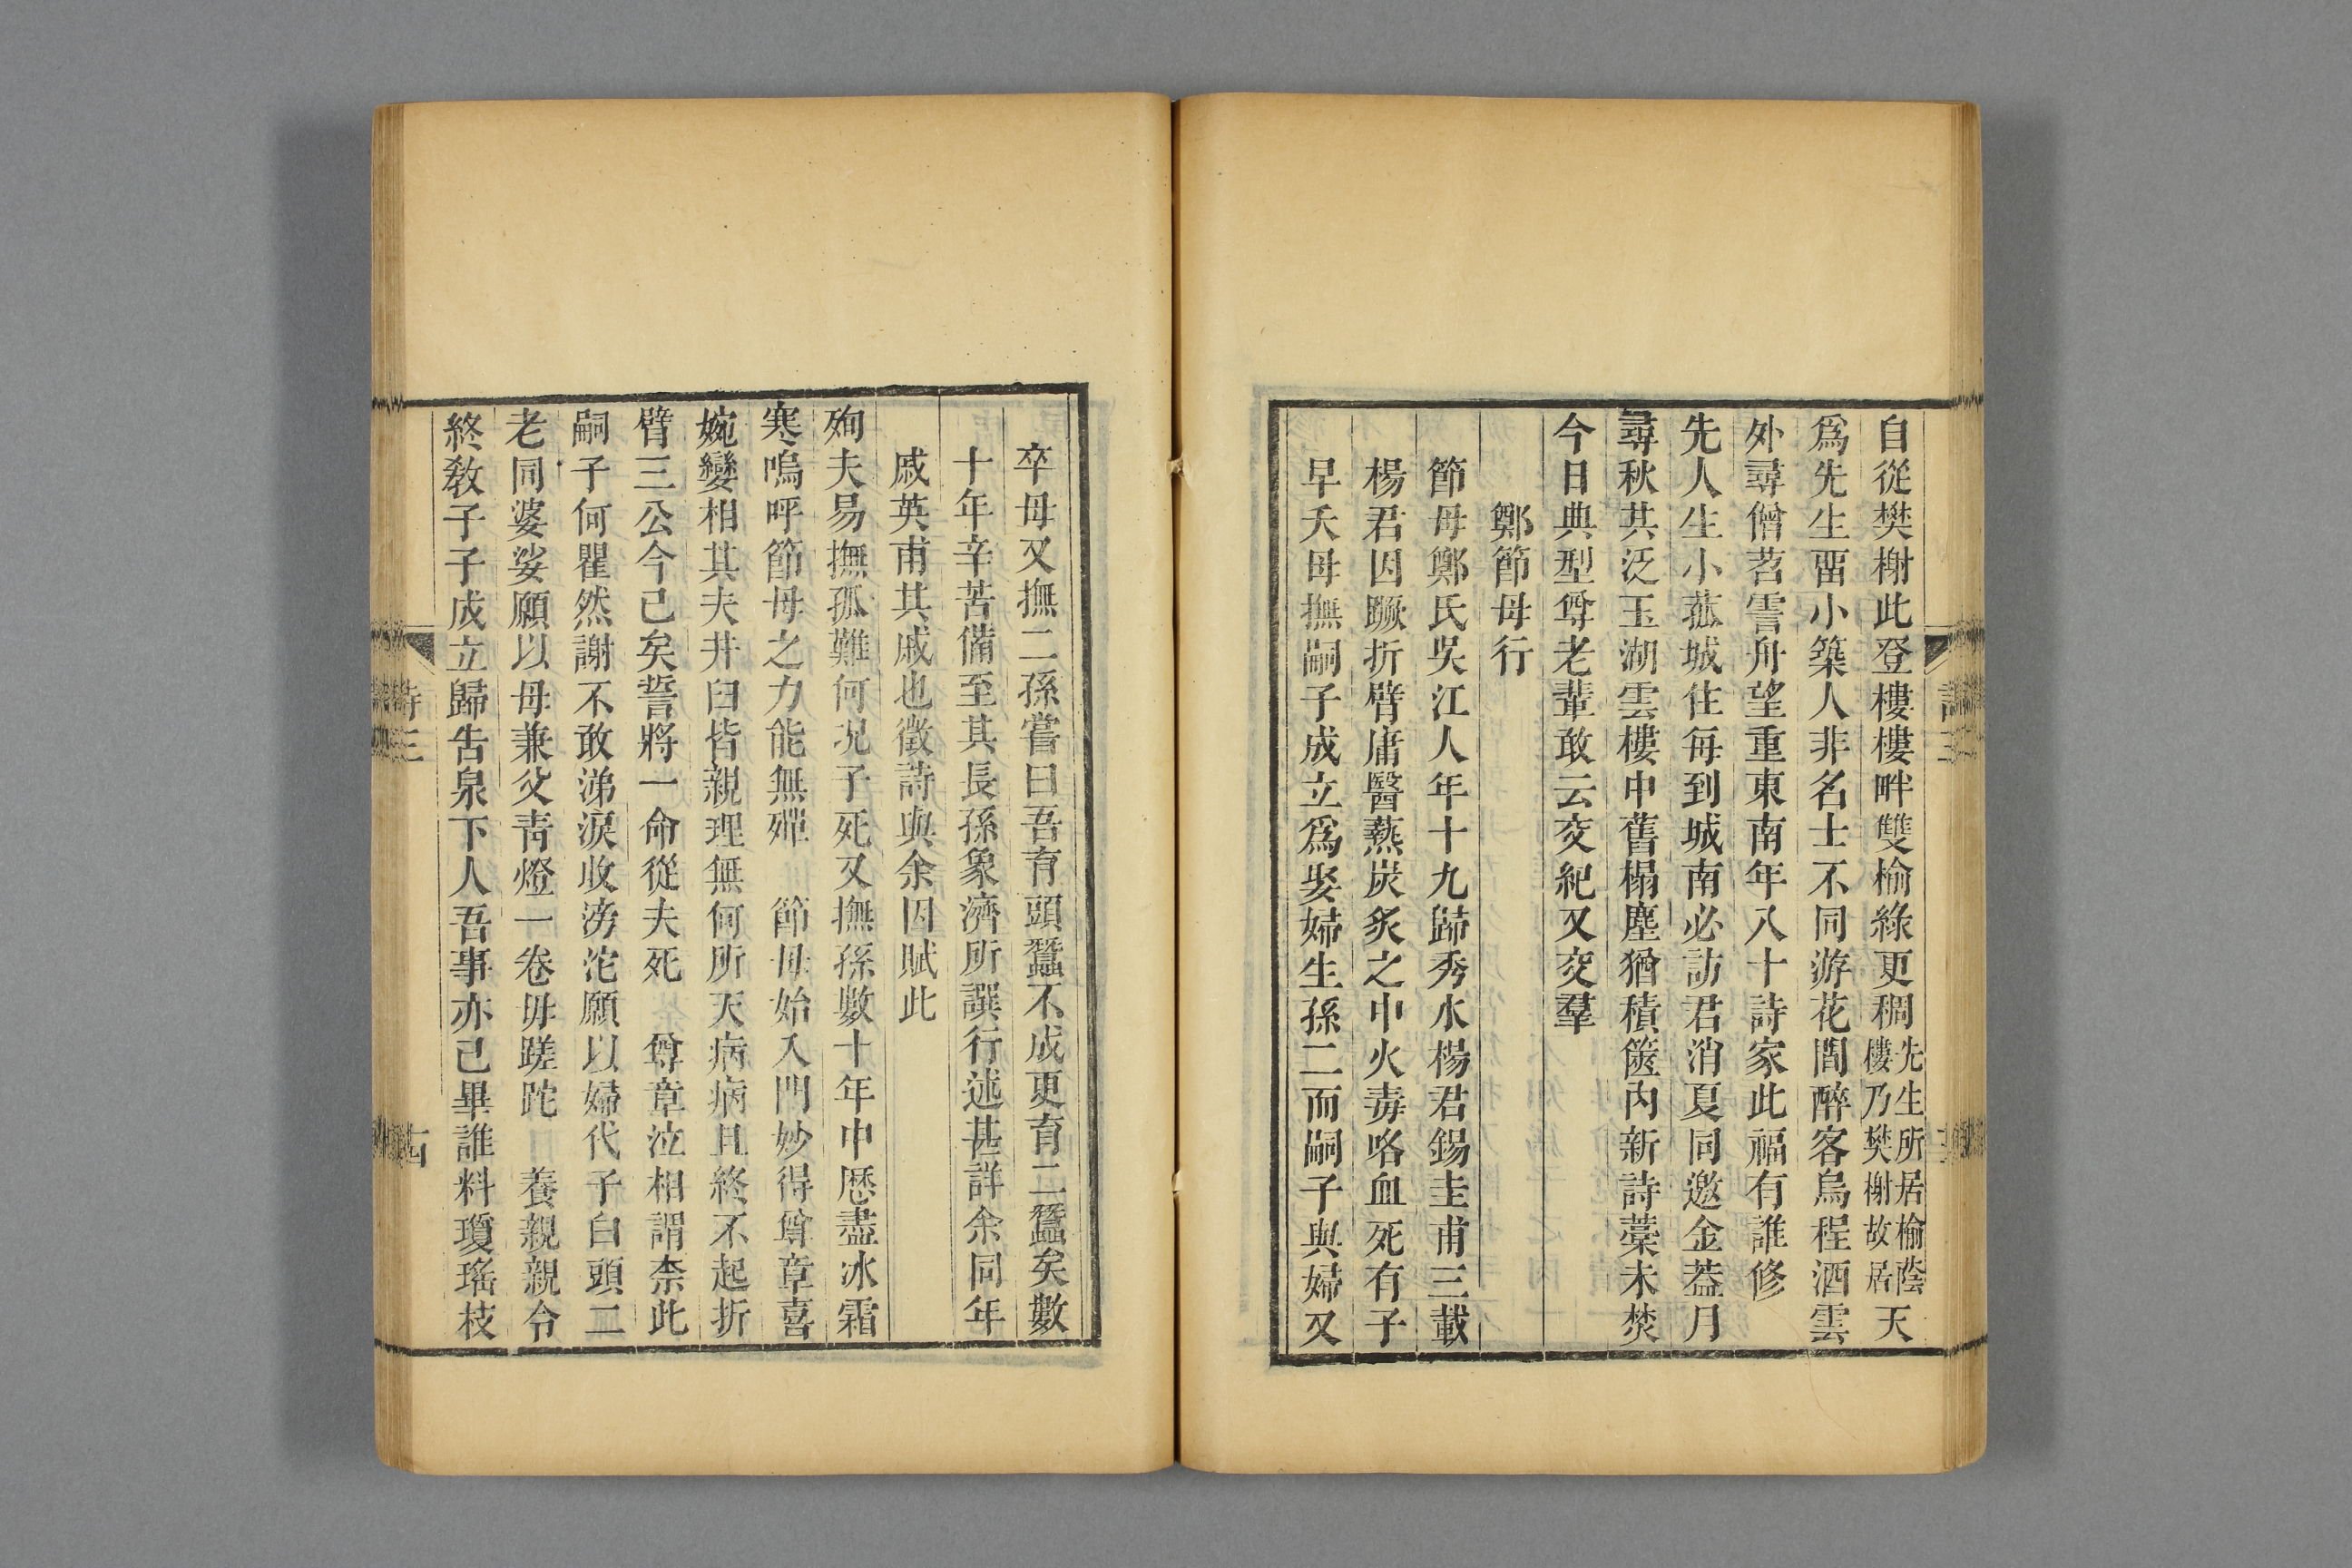 自從樊榭此登樓樓畔雙榆綠更稠先生所居榆蔭樓乃樊榭故居天
爲先生畱小築人非名士不同游花間醉客烏程酒雲
外尋僧苕霅舟望重東南年八十詩家此福有誰修
先人生小菰城住每到城南必訪君消夏同邀金葢月
尋秋共泛玉湖雲樓中舊榻塵猶積篋內新詩藁未焚
今日典型尊老輩敢云交紀又交羣
鄭節母行
節母鄭氏吳江人年十九歸秀水楊君錫圭甫三載
楊君因蹶折臂庸醫爇炭炙之中火毒咯血死有子
早夭母撫嗣子成立爲娶婦生孫二而嗣子與婦又
卒母又撫二孫嘗曰吾育頭蠶不成更育二蠶矣數
十年辛苦備至其長孫象濟所譔行述甚詳余同年
戚英甫其戚也徵詩與余因賦此
殉夫易撫孤難何况子死又撫孫數十年中歷盡冰霜
寒嗚呼節母之力能無殫 節母始入門妙得尊章喜
婉孌相其夫井臼皆親理無何所天病病且終不起折
臂三公今已矣誓將一命從夫死 尊章泣相謂柰此
嗣子何瞿然謝不敢涕淚收滂沱願以婦代子白頭二
老同婆娑願以母兼父靑燈一卷毋蹉跎 養親親令
終敎子子成立歸告泉下人吾事亦已畢誰料瓊瑤枝
詩三
十四